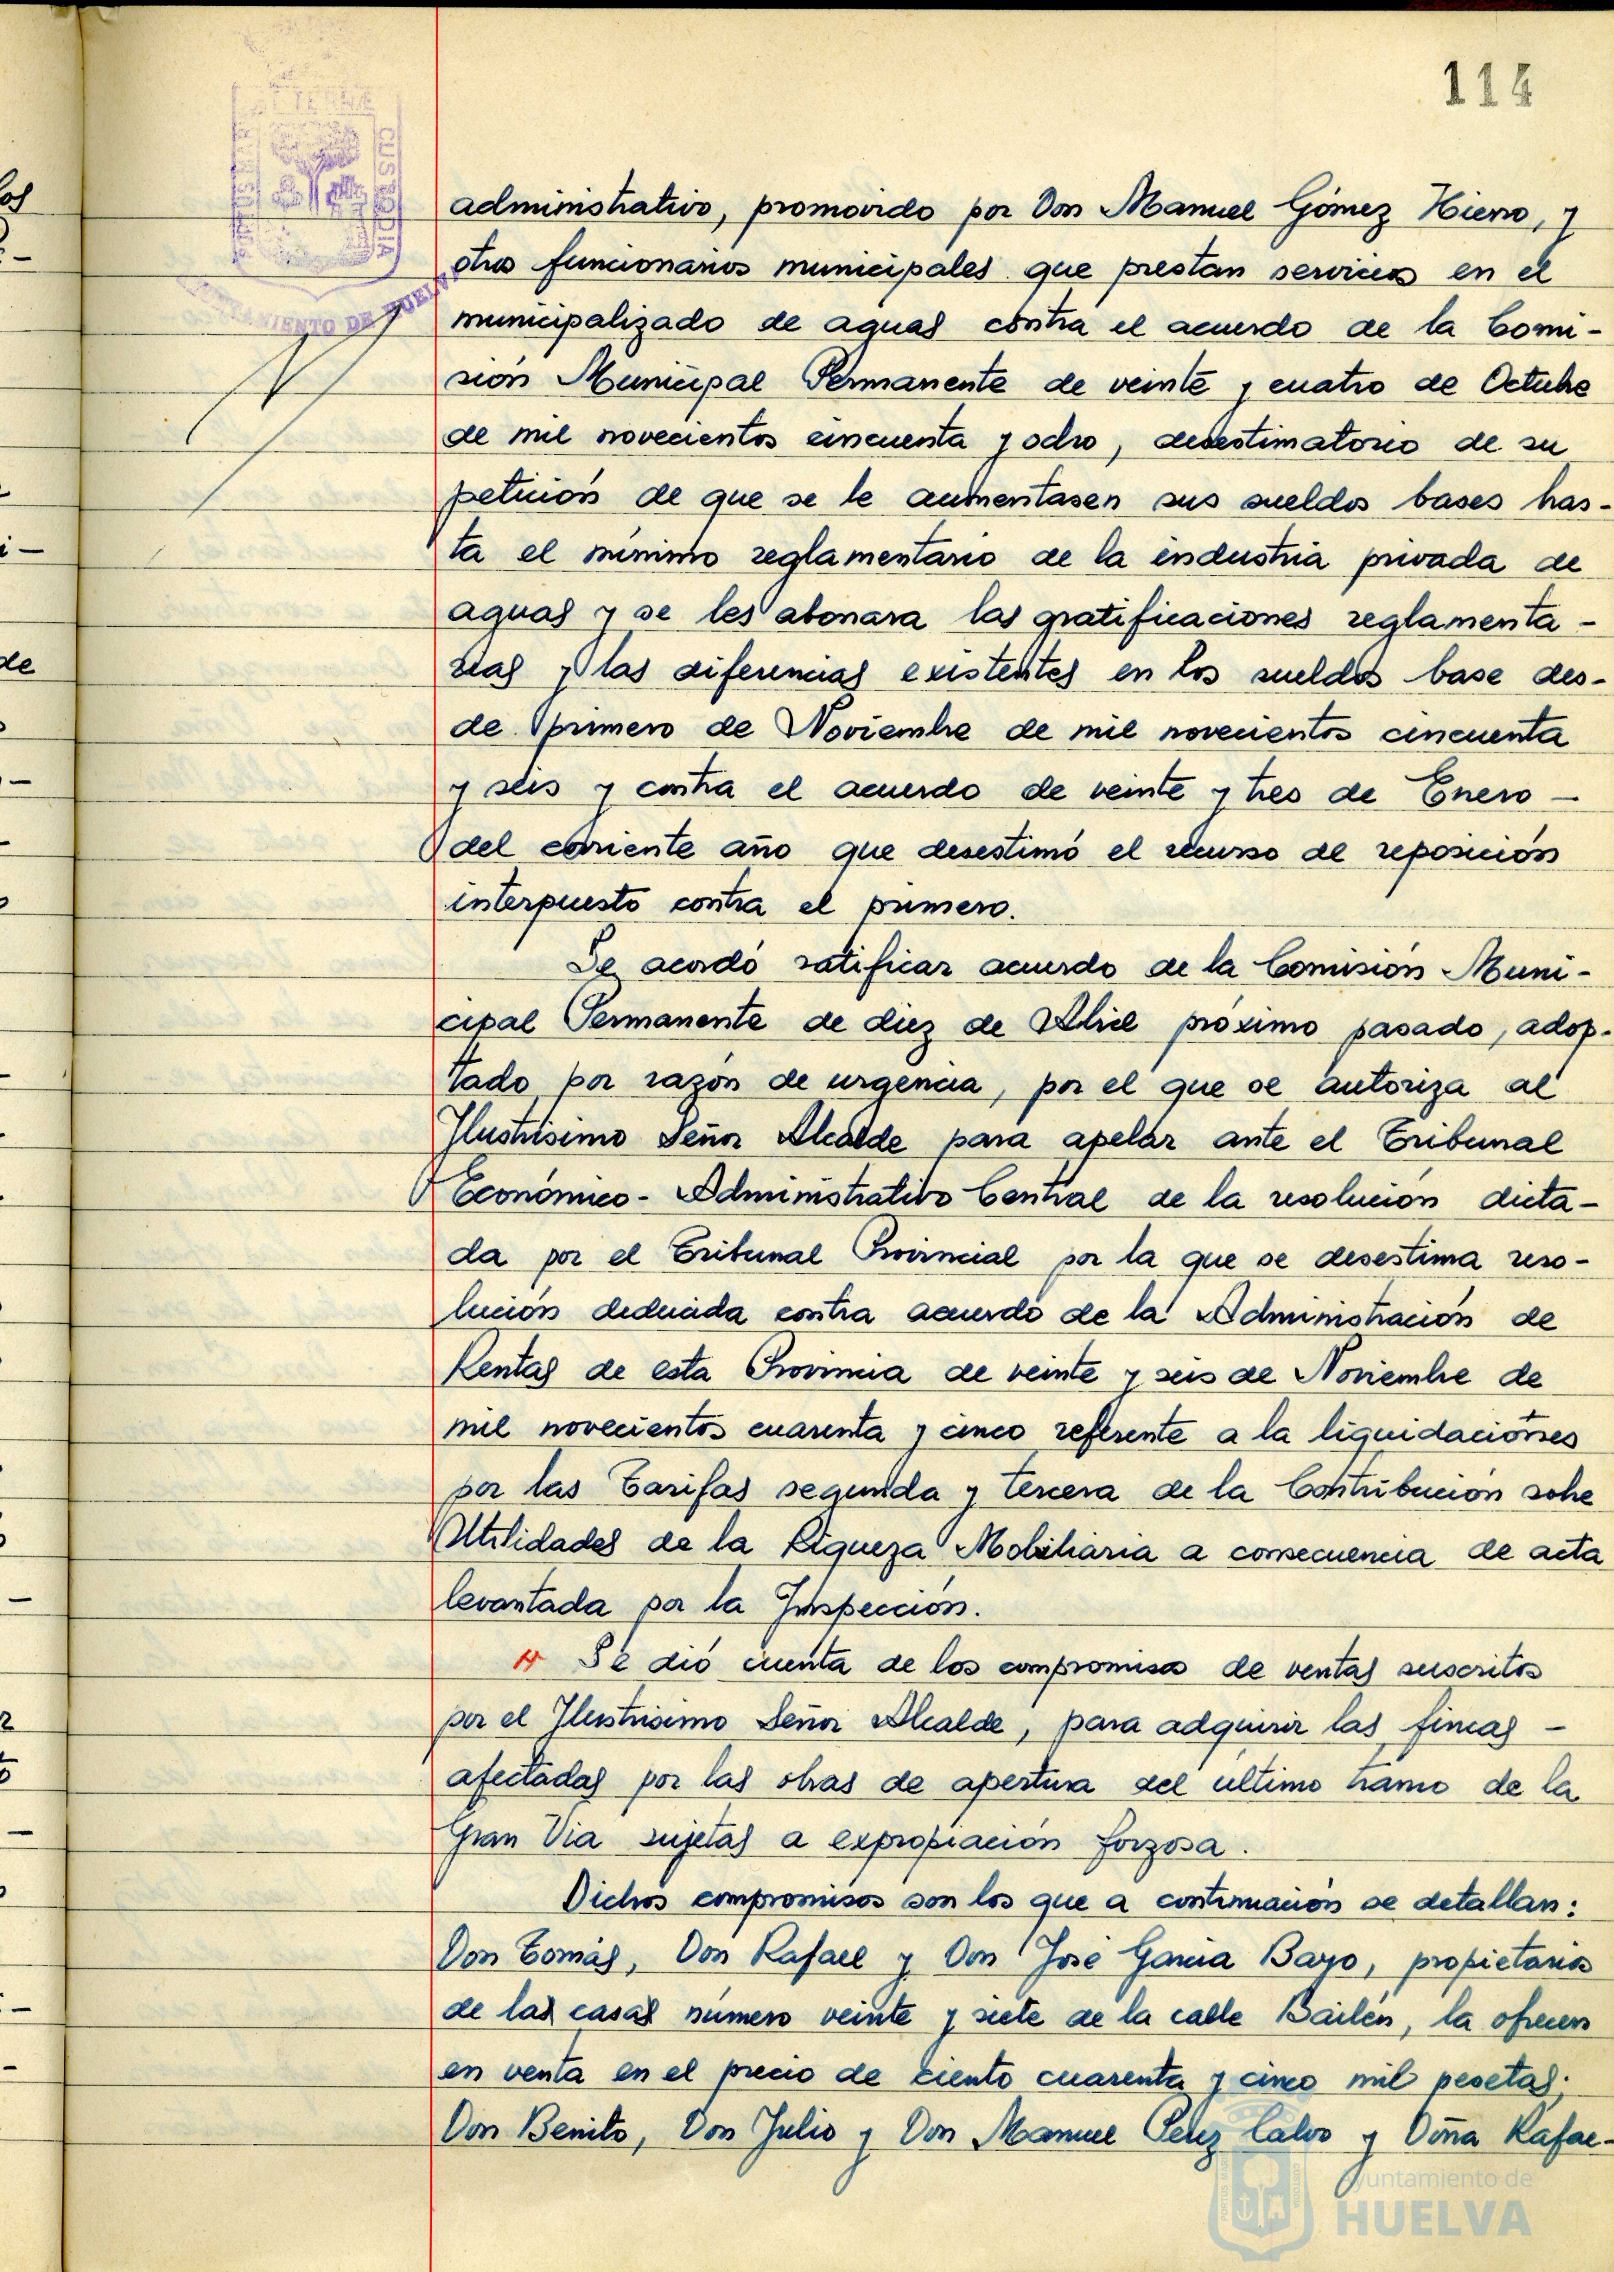 114
administrativo, promovido por Don Manuel Gómez Hierro, y
otros funcionarios municipales que prestan servicios en el
municipalizado de aguas contra el acuerdo de la Comi-
sión Municipal Permanente de veinte y cuatro de Octubre
de mil novecientos cincuenta y ocho, desestimatorio de su
petición de que se le aumentasen sus sueldos bases has-
ta el mínimo reglamentario de la industria privada de
aguas y se les abonara las gratificaciones reglamenta-
rias y las diferencias existentes en los sueldos base des-
de primero de Noviembre de mil novecientos cincuenta
y seis y contra el acuerdo de veinte y tres de Enero -
del corriente año que desestimó el recurso de reposición
interpuesto contra el primero.
Se acordó ratificar acuerdo de la Comisión Muni-
cipal Permanente de diez de Abril próximo pasado, adop-
tado por razón de urgencia, por el que se autoriza al
Ilustrísimo Señor Alcalde para apelar ante el Tribunal
Económico-Administrativo Central de la resolución dicta-
da por el Tribunal Provincial por la que se desestima reso-
lución deducida contra acuerdo de la Administración de
Rentas de esta Provincia de veinte y seis de Noviembre de
mil novecientos cuarenta y cinco referente a la liquidaciones
por las Tarifas segunda y tercera de la Contribución sobre
Utilidades de la Riqueza Mobiliaria a consecuencia de acta
levantada por la Inspección.
Se dió cuenta de los compromisos de ventas suscritos
por el Ilustrisimo Señor Alcalde, para adquirir las fincas -
afectadas por las obras de apertura del último tramo de la
Gran Via sujetas a expropiación forzosa.
Dichos compromisos son los que a continuación se detallan:
Don Tomás, Don Rafael y Don José García Bayo, propietarios
de las casas número veinte y siete de la calle Bailén, la ofrecen
en venta en el precio de ciento cuarenta y cinco mil pesetas;
Don Benito, Don Julio y Don Manuel Perez Calvo y Doña Rafae-
PORTUS MARIS ET TERRAE CUSTODIA
AYUNTAMIENTO DE HUELVA
Ayuntamiento de
HUELVA